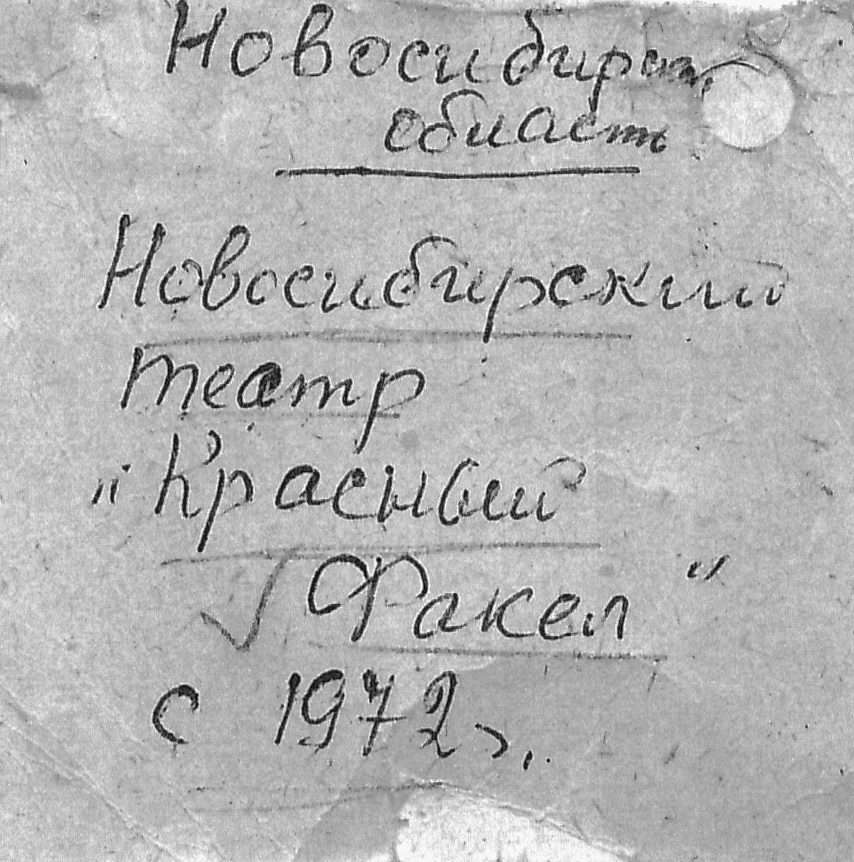 Новосибирск.
область
Новосибирский
театр
„Красный
Факел"
с 1972 г.